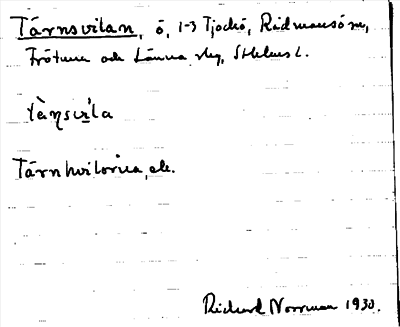 Tärnsvilan, ö, 1-3 Tjockö, Rådmansö sn,
Frötuna och Länna slg, Sthlms l.
tæ̀ṇsvi̱la
Tärnhvilorna, ek.
Richard Norrman 1930.